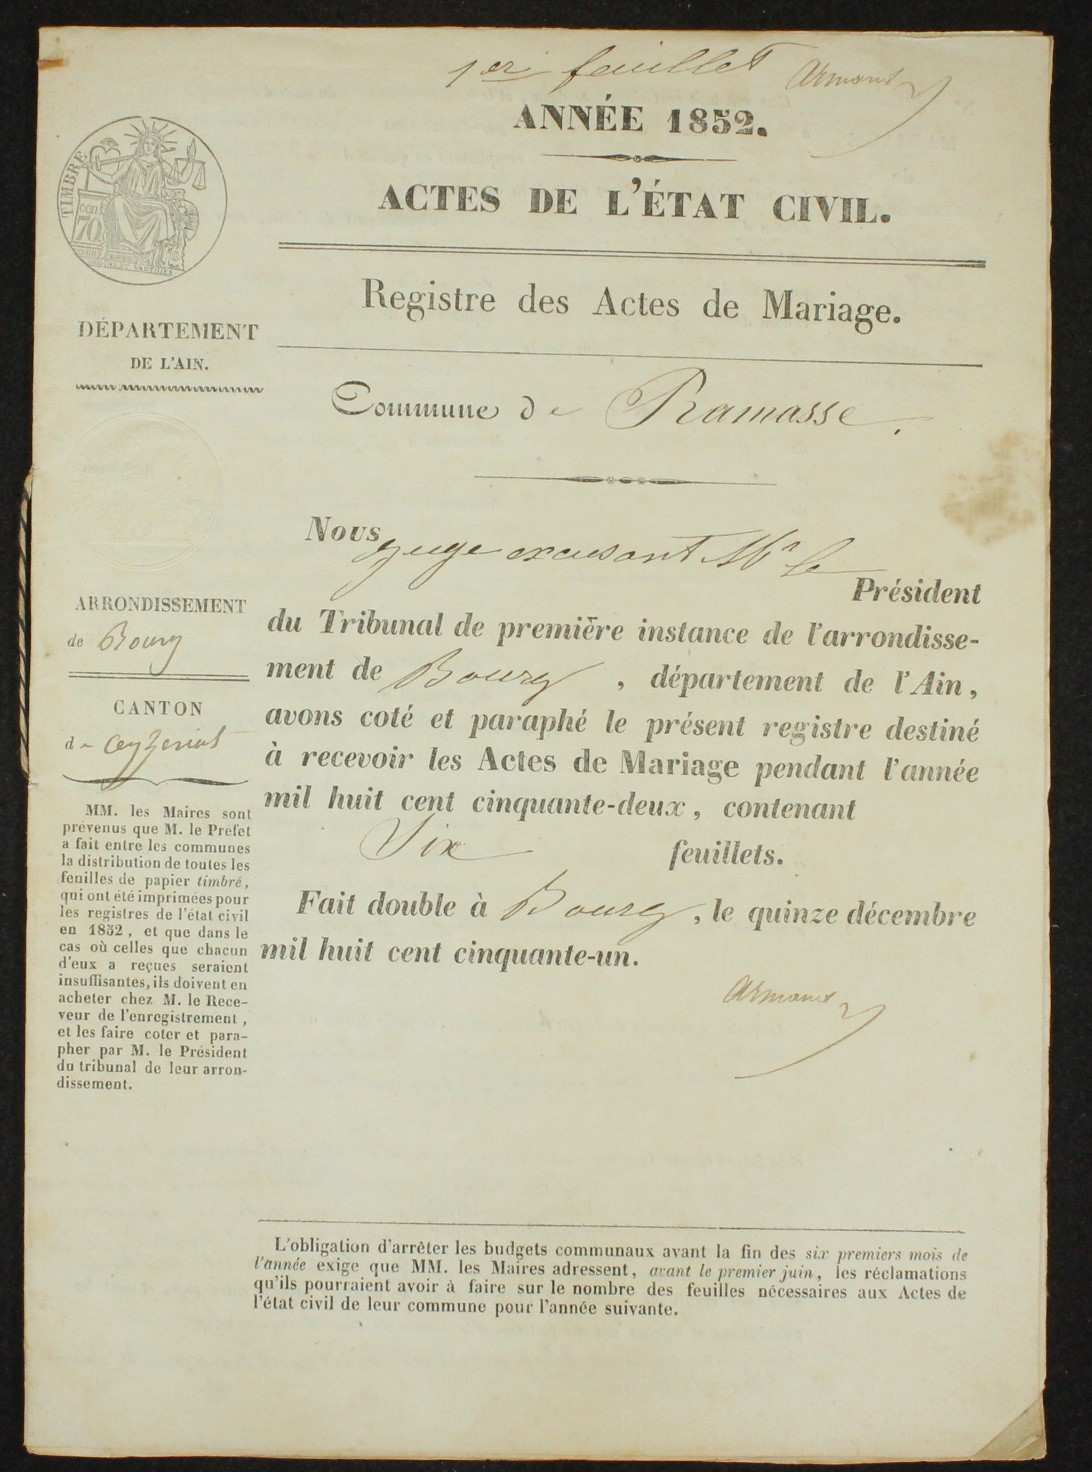 1er feuillet Armand
ANNÉE 1852.
ACTES DE L'ÉTAT CIVIL.
Registre des Actes de Mariage.
Commune de Ramasse.
TIMBRE
70
DÉPARTEMENT
DE L'AIN.
ARRONDISSEMENT
de Bourg
CANTON
de Ceyzeriat
MM. les Maires sont
prévenus que M. le Préfet
a fait entre les communes
la distribution de toutes les
feuilles de papier timbré,
qui ont été imprimées pour
les registres de l'état civil
en 1852, et que dans le
cas où celles que chacun
d'eux a reçues seraient
insuffisantes, ils doivent en
acheter chez M. le Rece-
veur de l'enregistrement,
et les faire coter et para-
pher par M. le Président
du tribunal de leur arron-
dissement.
Nous
Juge excusant Mr le
Président
du Tribunal de première instance de l'arrondisse-
ment de Bourg, département de l'Ain,
avons coté et paraphé le présent registre destiné
à recevoir les Actes de Mariage pendant l'année
mil huit cent cinquante-deux, contenant
Six feuillets.
Fait double à Bourg, le quinze décembre
mil huit cent cinquante-un.
Armand
L'obligation d'arrêter les budgets communaux avant la fin des six premiers mois de
l'année exige que MM. les Maires adressent, avant le premier juin, les réclamations
qu'ils pourraient avoir à faire sur le nombre des feuilles nécessaires aux Actes de
l'état civil de leur commune pour l'année suivante.